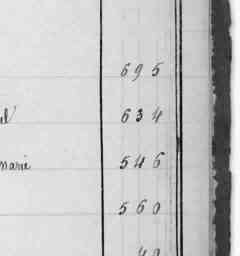 695
634
marie 546
560